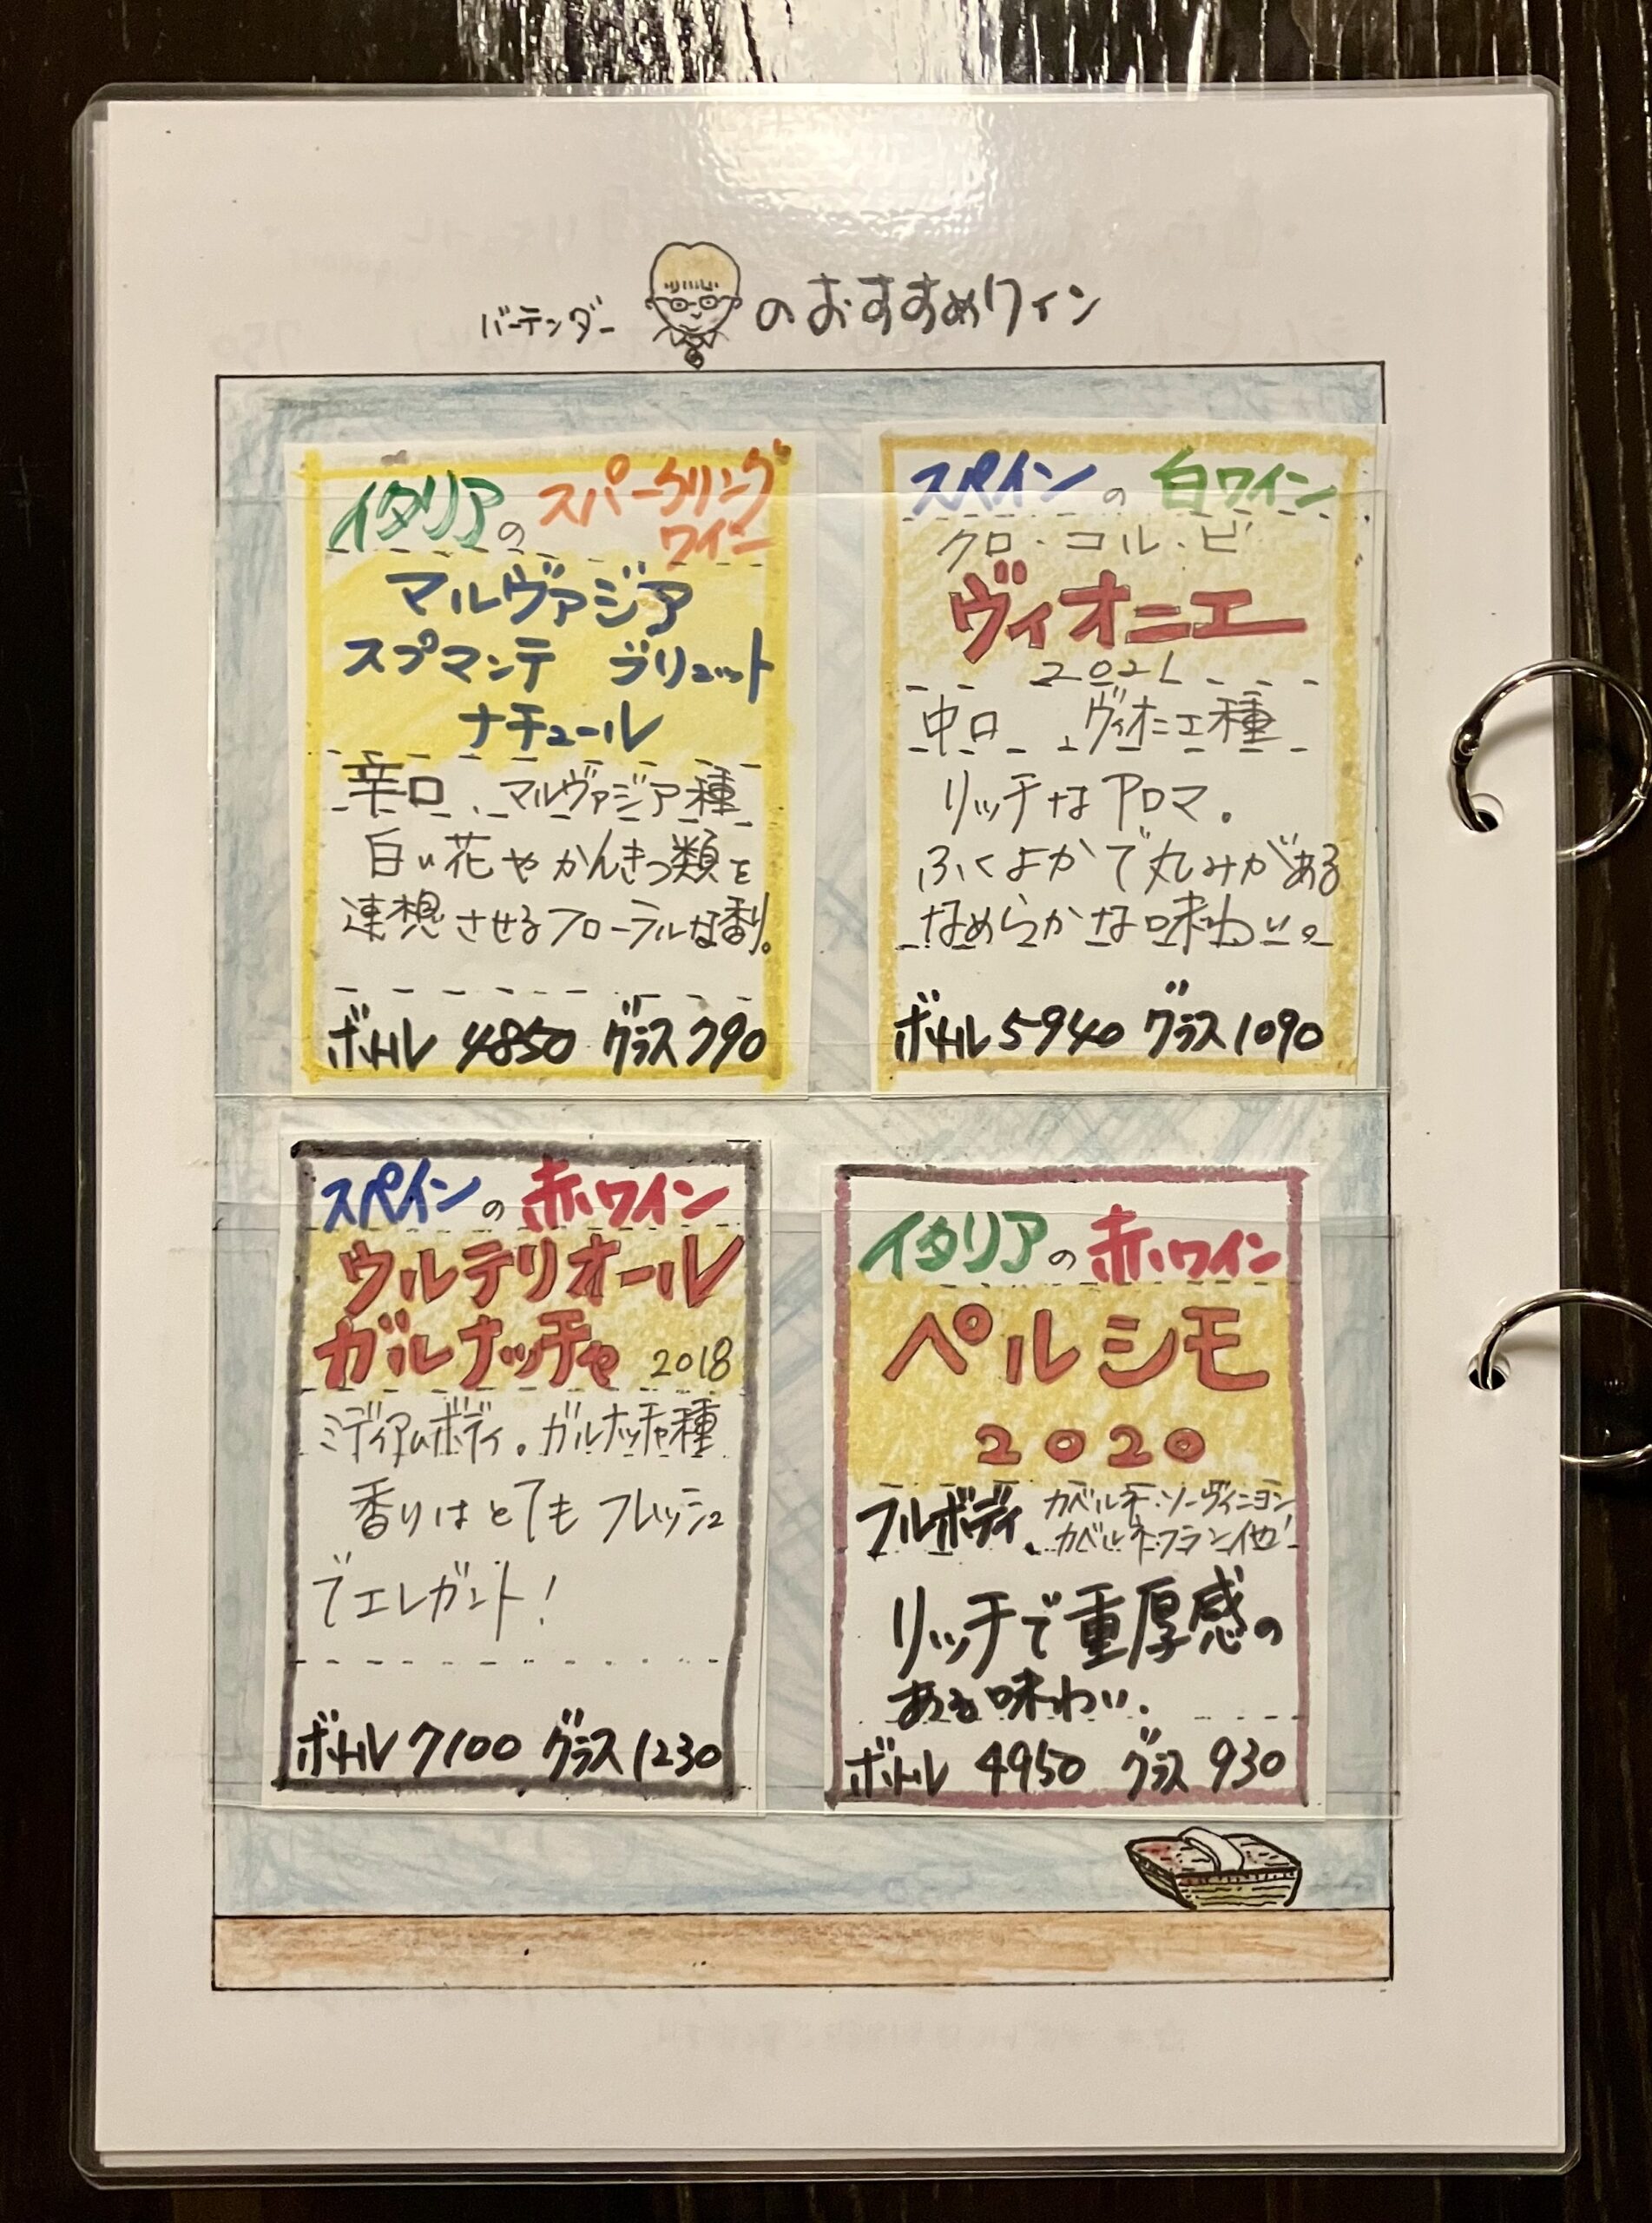 バーテンダー のおすすめワイン
イタリアの スパークリング
ワイン
マルヴァジア
スプマンテ ブリュット
ナチュール
辛口、マルヴァジア種
白い花やかんきつ類を
連想させるフローラルな香り。
ボトル 4850 グラス 790
スペインの白ワイン
クロ・コル・ビ
ヴィオニエ
2021
中口、ヴィオニエ種
リッチなアロマ。
ふくよかで丸みがある
なめらかな味わい。
ボトル 5940 グラス 1090
スペインの赤ワイン
ウルテリオール
ガルナッチャ 2018
ミディアムボディ。ガルナッチャ種
香りはとてもフレッシュ
でエレガント!
ボトル 7100 グラス 1230
イタリアの赤ワイン
ペルシモ
2020
フルボディ、カベルネ・ソーヴィニヨン
カベルネ・フラン他
リッチで重厚感の
ある味わい.
ボトル 4950 グラス 930